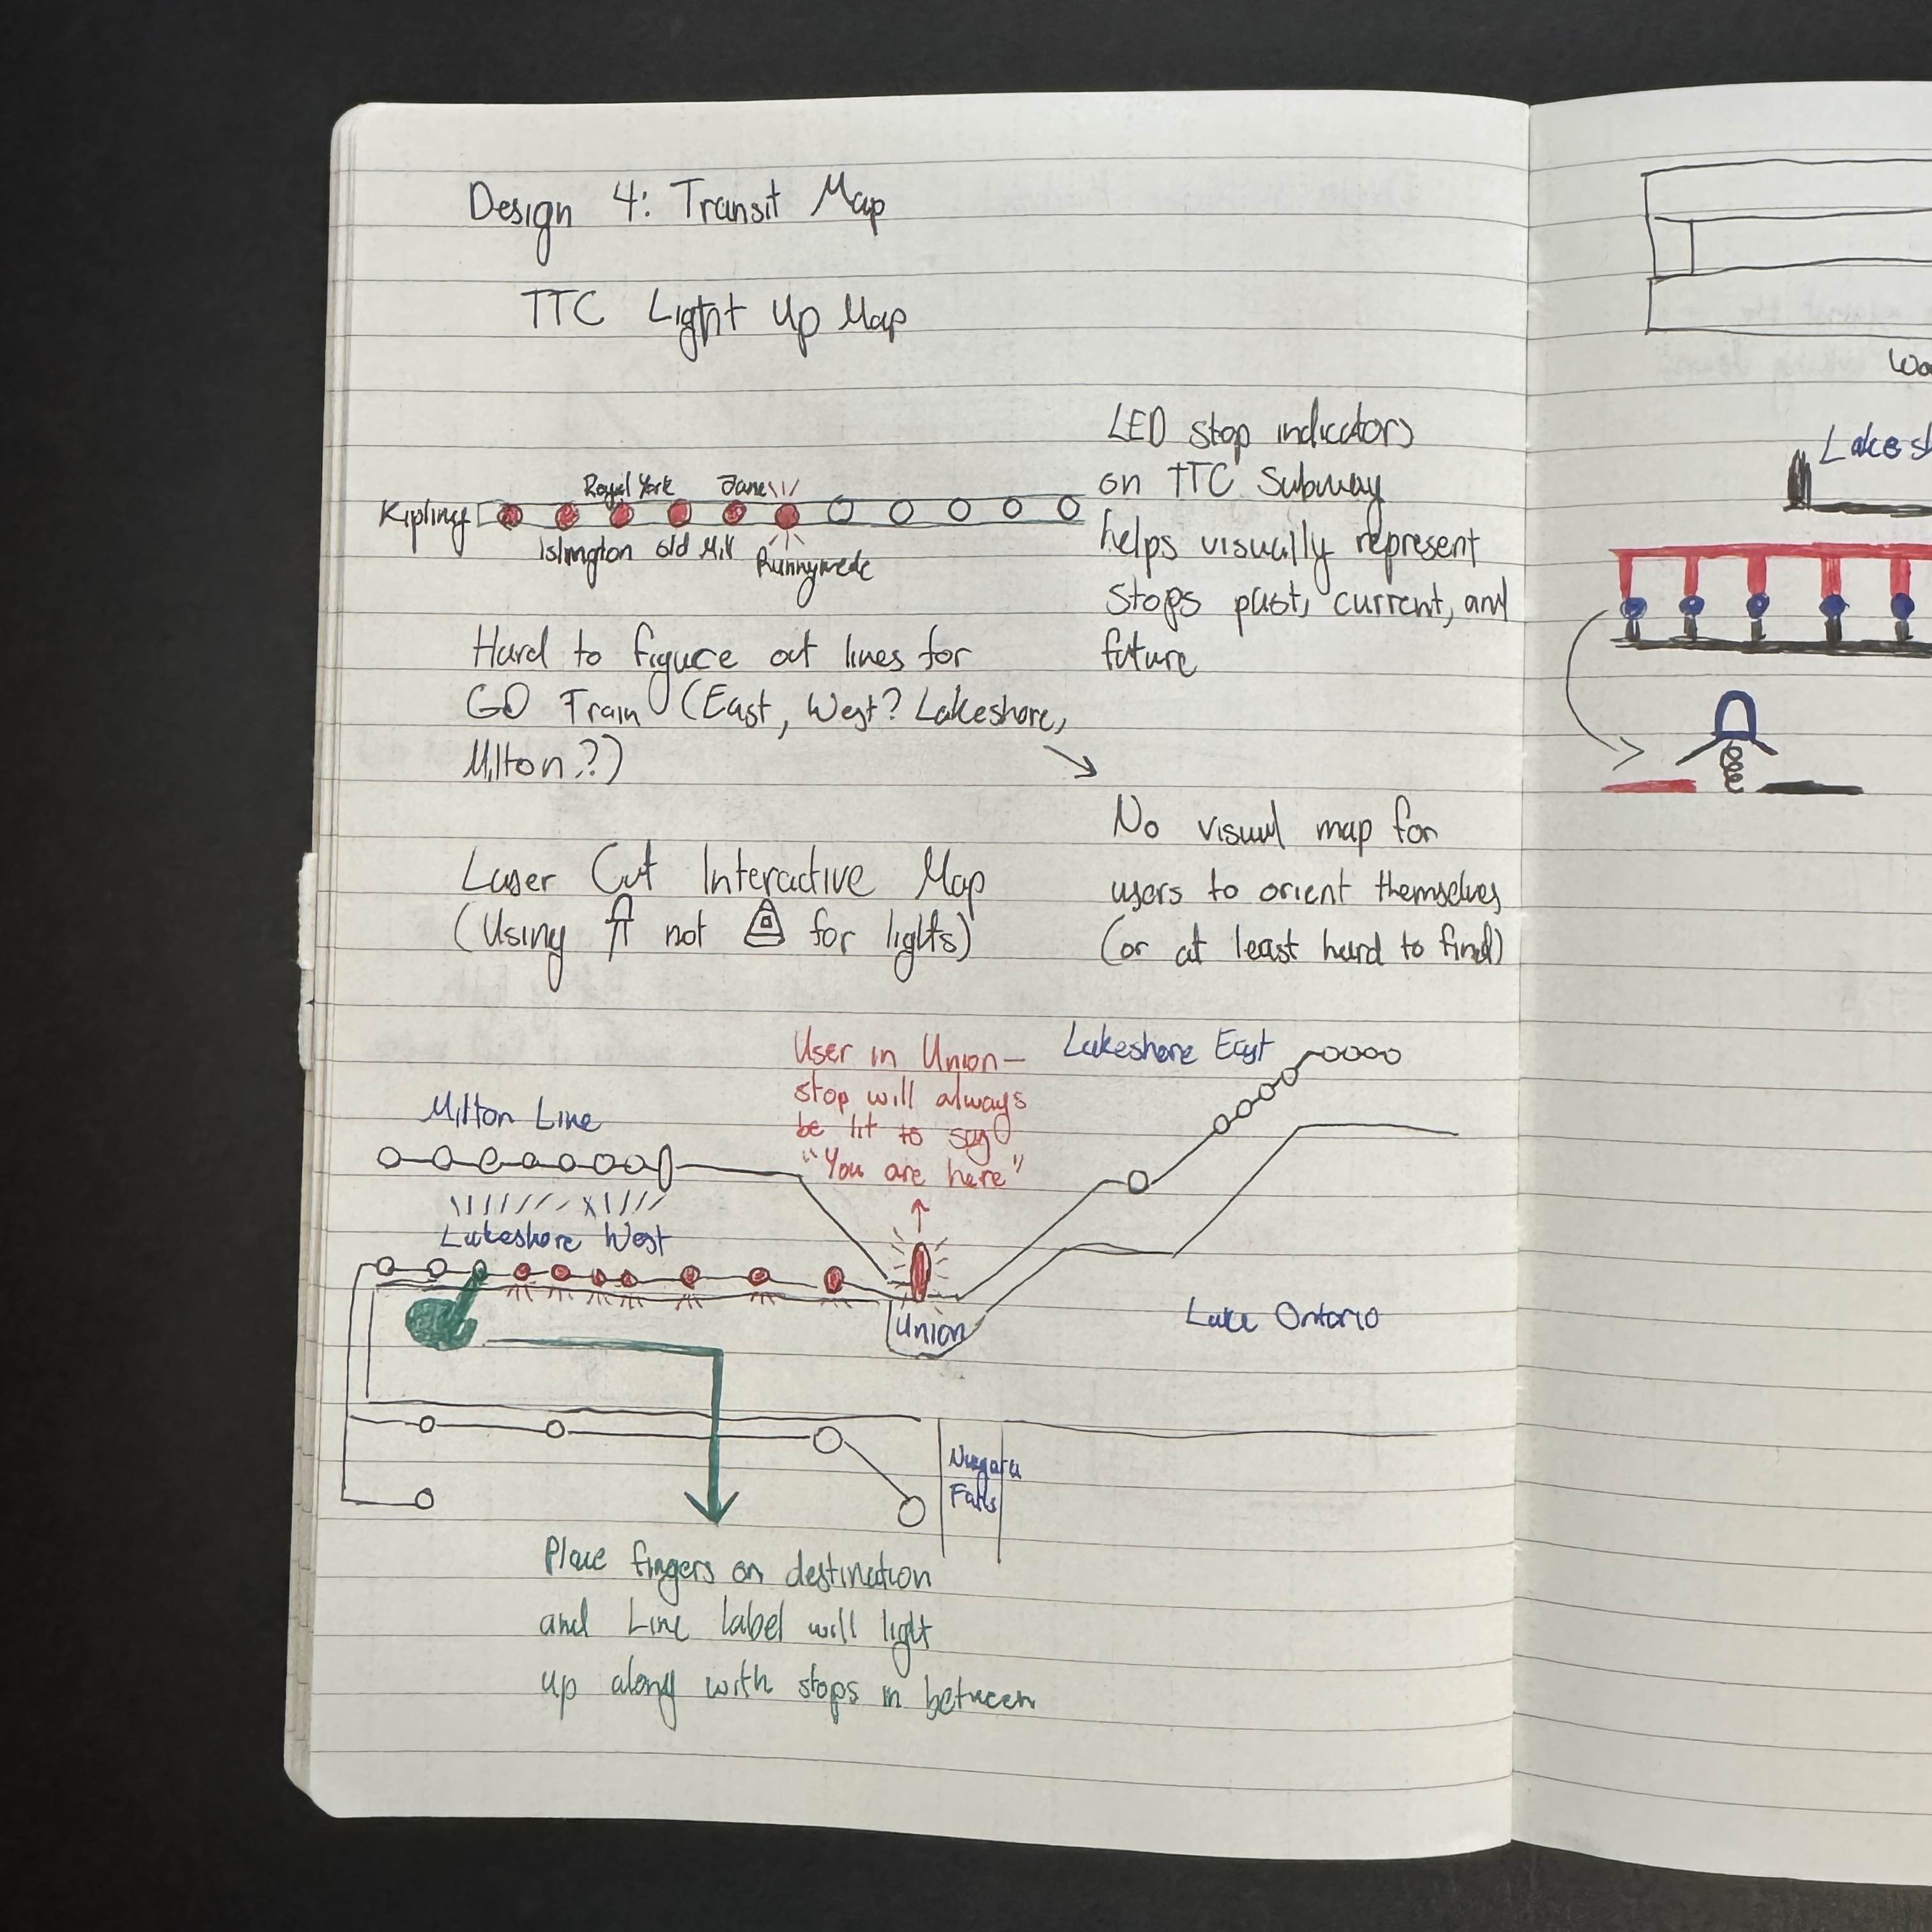 Design 4: Transit Map
TTC Light Up Map
Kipling
Royal York
Jane
Islington
Old Mill
Runnymede
LED stop indicators
on TTC Subway
helps visually represent
stops past, current, and
future
Hard to figure out lines for
GO Train (East, West? Lakeshore,
Milton?)
No visual map for
users to orient themselves
(or at least hard to find)
Laser Cut Interactive Map
(Using not for lights)
User in Union—
stop will always
be lit to say
"You are here"
Lakeshore East
Milton Line
Lakeshore West
Union
Lake Ontario
Niagara
Falls
Place fingers on destination
and Line label will light
up along with stops in between